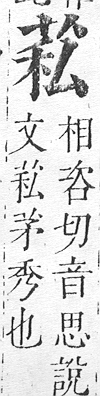 相咨切音思說
文茅秀也